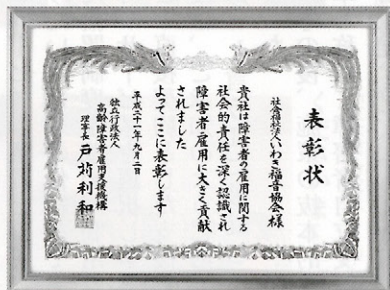 表彰状
社会福祉法人いわき福音協会様
貴社は障害者の雇用に関する
社会的責任を深く認識され
障害者雇用に大きく貢献
されました
よってここに表彰します
平成二十一年九月二日
独立行政法人
高齢障害者雇用支援機構
理事長 戸苅利和